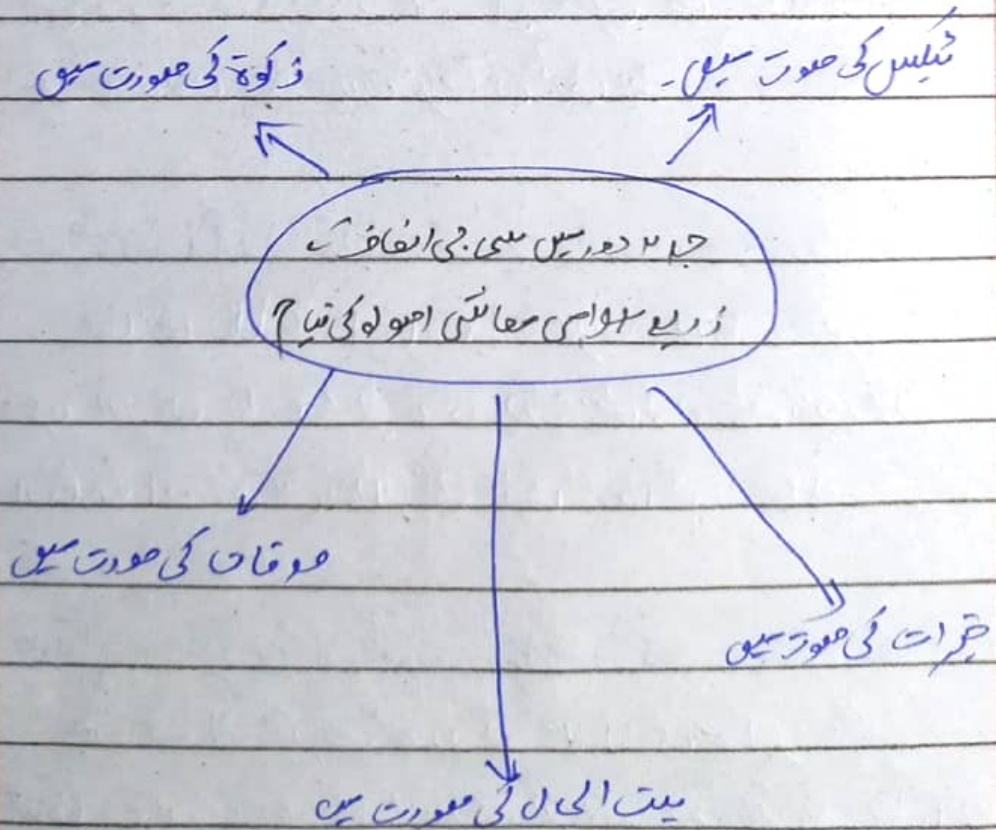 ٹیکس کی صورت میں۔
زکوٰۃ کی صورت میں
جدید دور میں سماجی انصاف کے
ذریعے اسلامی معاشی اصولوں کی
صدقات کی صورت میں
خیرات کی صورت میں
بیت المال کی صورت میں